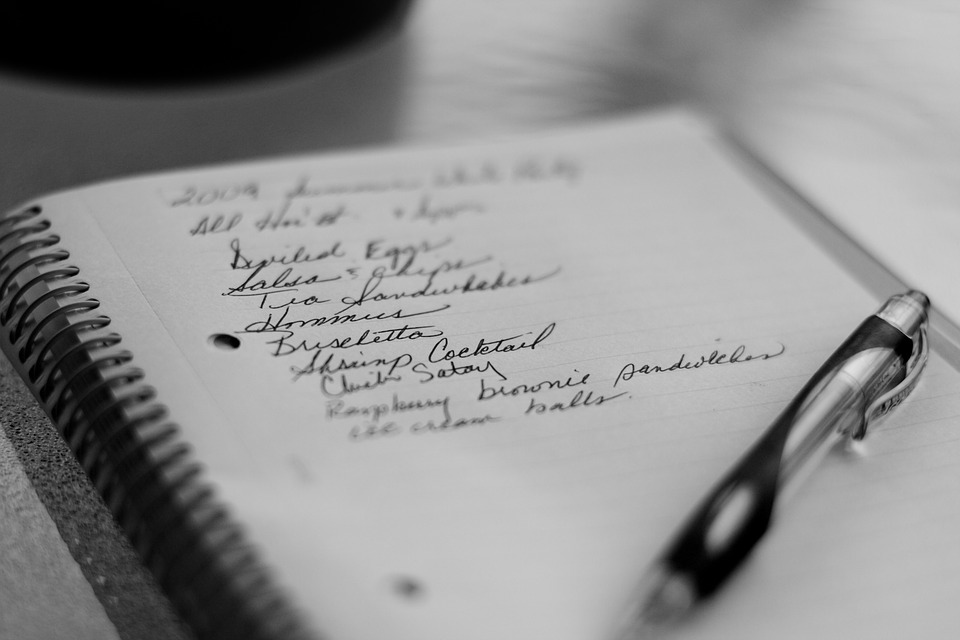 2009 Summer White Party
All Hot
Deviled Eggs
Salsa & Chips
Tea Sandwhches
Hommus
Bruschetta
Shrimp Cocktail
Satay
Raspberry brownie sandwiches
ice cream balls.